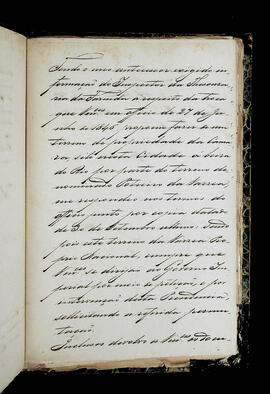 Tendo o meu antecessor exigido in-
formação do Inspector da Thesoura-
ria da Fazenda a respeito da troca
que Vm.ces em officio de 27 de Ju-
nho de 1848 propoem fazer de um
terreno de propriedade da Cama-
ra, sito nesta Cidade a beira
do Rio por parte do terreno de-
nominado Potreiro da Varzea,
me respondeu nos termos do
officio junto por copia datado
de 30 de Setembro ultimo. Sendo
pois este terreno da Varzea Pro-
prio Nacional, cumpre que
Vm.ces se dirijão ao Governo Im-
perial por meio de petição, e por
intervenção desta Presidencia,
solicitando a referida permu-
tação.
Inclusos devolvo a Vm.ces os docu-